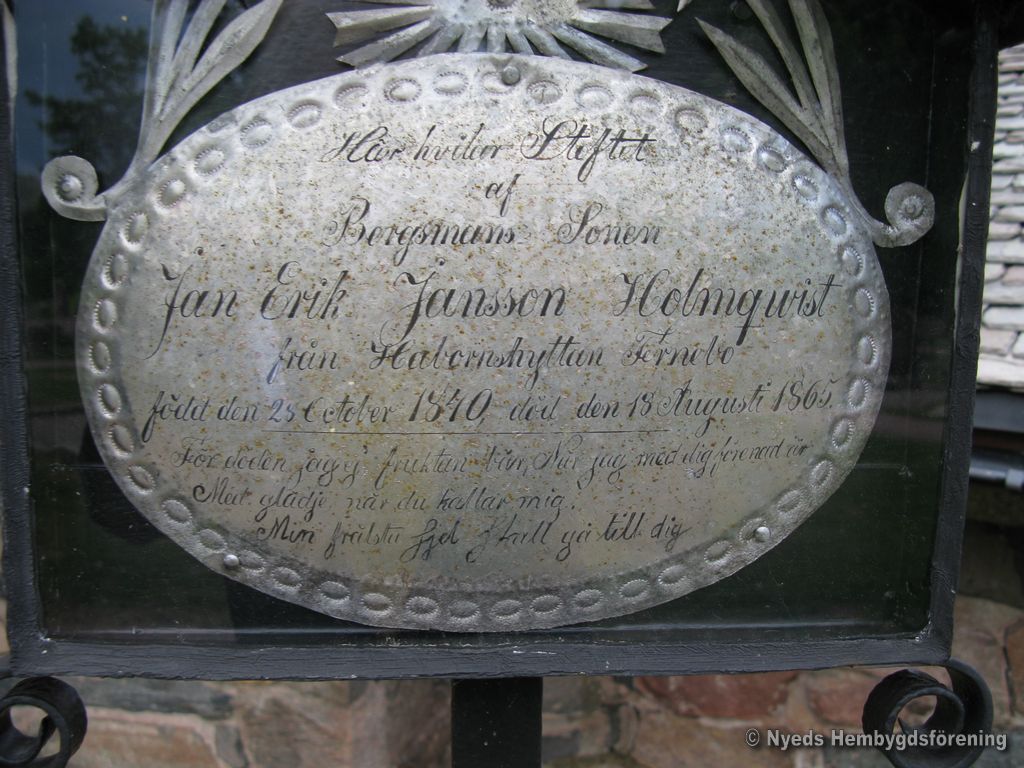 Här hvilar Stoftet
af
Bergsmans Sonen
Jan Erik Jansson Holmqwist
från Habornshyttan Fernebo
född den 28 October 1840, död den 18 Augusti 1865.
För döden jag ej fruktan bär, När jag med dig förenad är
Med glädje när du kallar mig.
Min frälsta Sjel skall gå till dig
© Nyeds Hembygdsförening